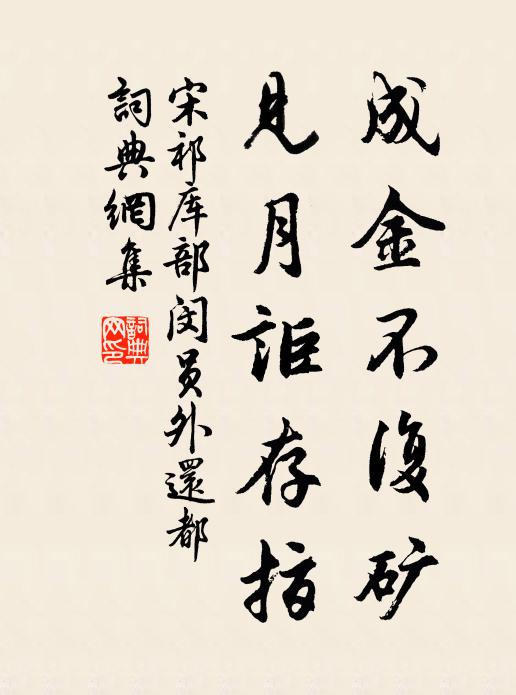 成金不復矿
見月詎存指
宋祁库部闵员外還都
詞典網集
詞典网印